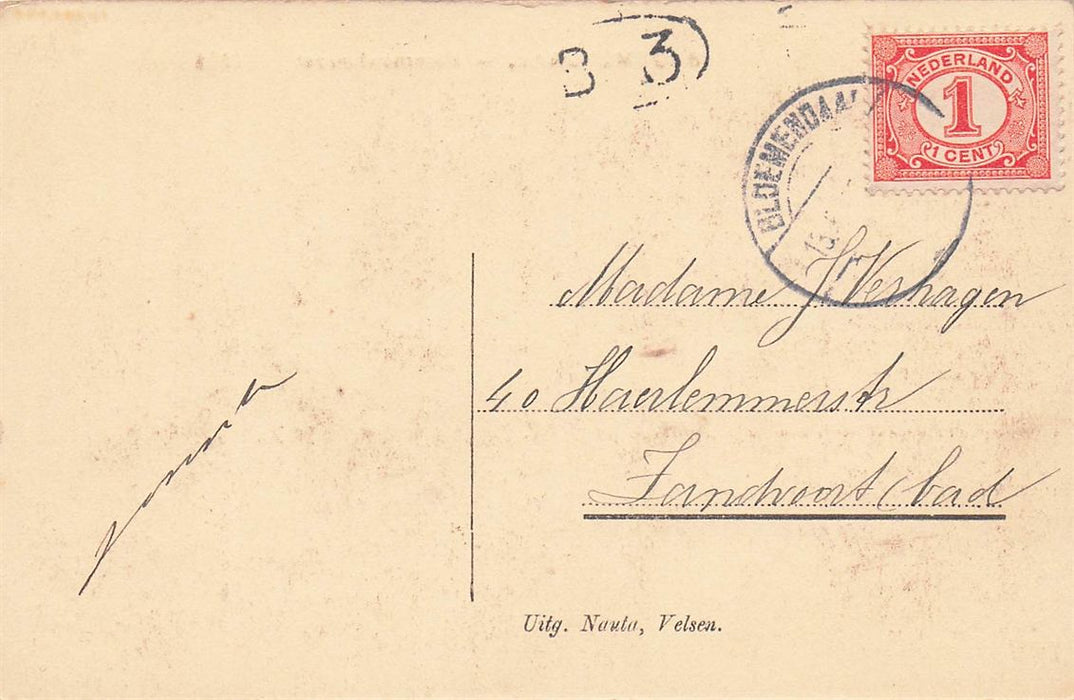 B 3
NEDERLAND
1
1 CENT
BLOEMENDAAL
Madame J Verhagen
40 Haerlemmerstr
Zandvoort (bad
Uitg. Nauta, Velsen.